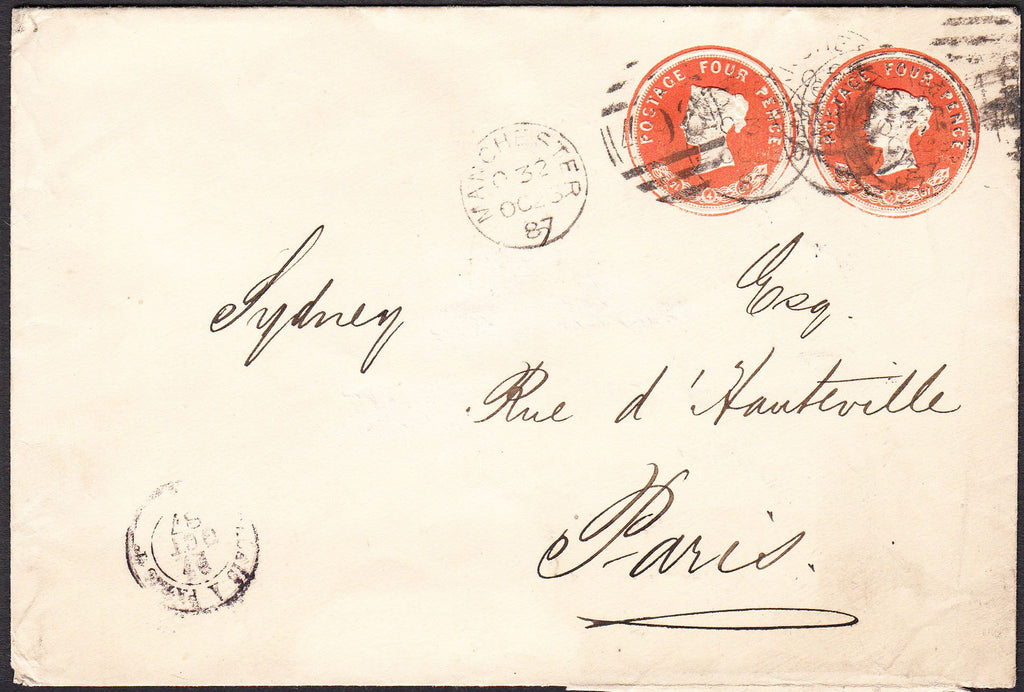 POSTAGE FOUR PENCE
POSTAGE FOUR PENCE
MANCHESTER
32
OC
87
87
Sydney Esq.
Rue d'Hauteville
Paris.
A
87